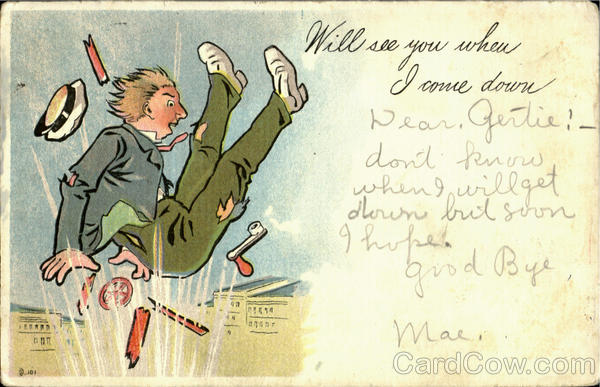 Will see you when
I come down
Dear, Gertie! -
don't know
when I will get
down but soon
I hope.
Good Bye
Mae.
D. 101
CardCow.com